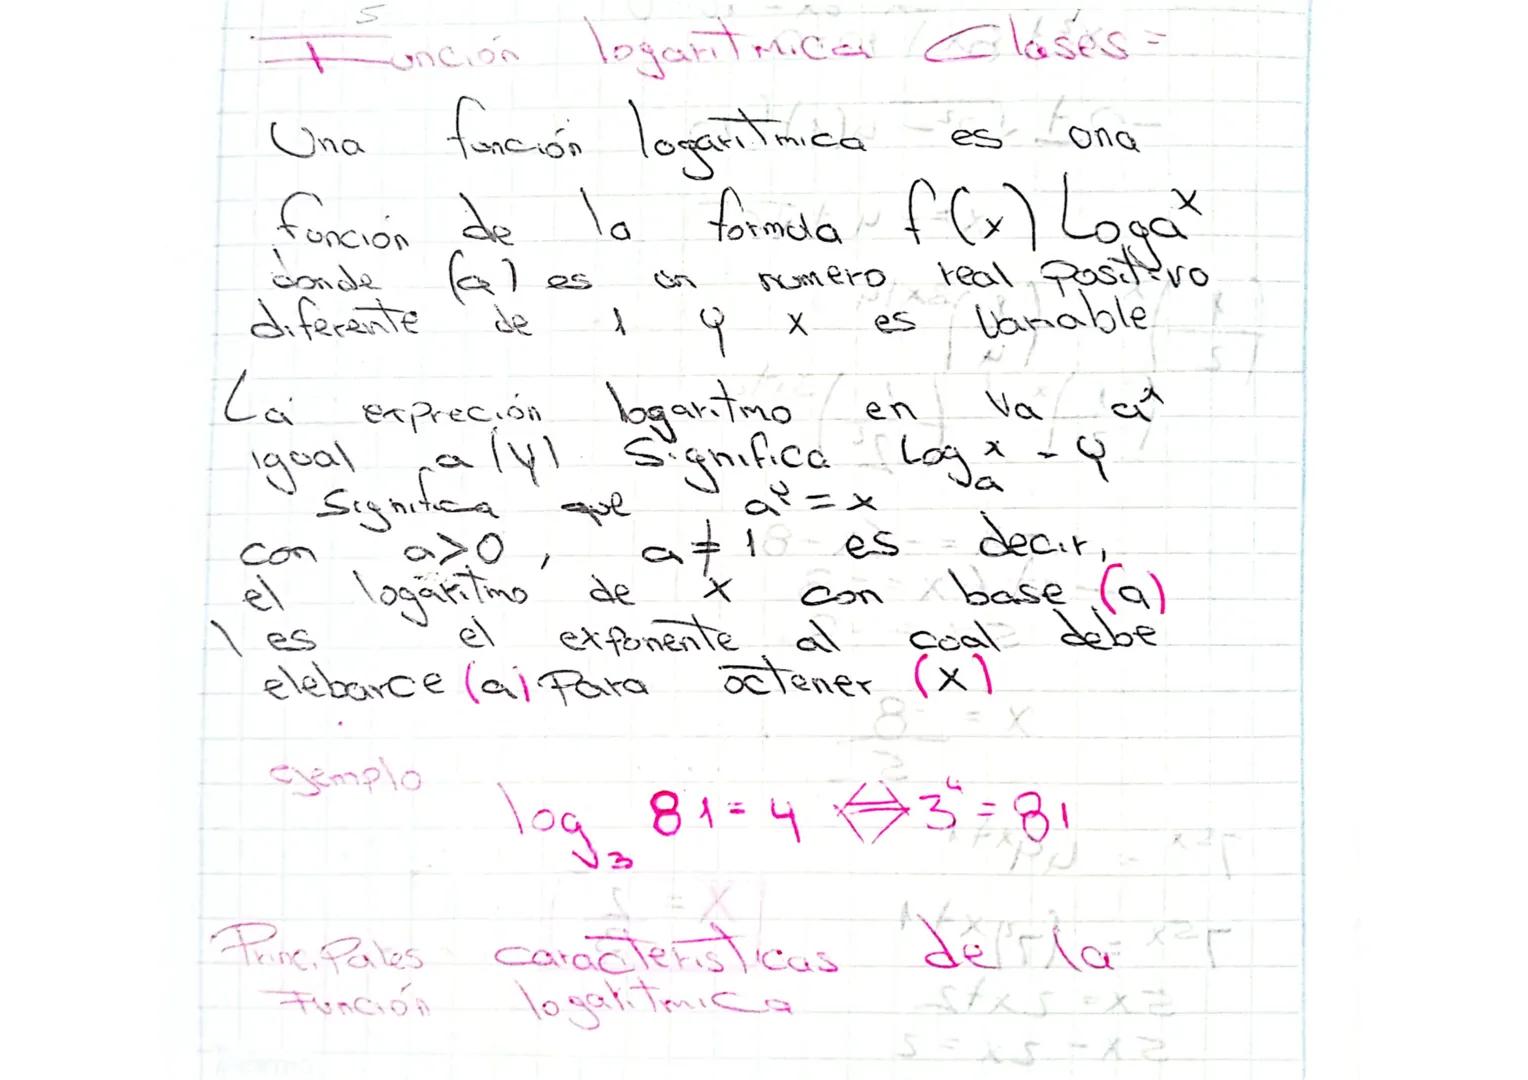 Función logaritmica Clases=
Una función logaritmica es una
función de la formula f(x) Loga^x
donde (a) es un numero real positivo
diferente de 1 y x es Variable
La expreción logaritmo en Va a^x
igual a (y) Significa Log_a x = y
Significa que a^y = x
con a>0, a≠1 es decir,
el logaritmo de x con base (a)
es el exponente al cual debe
elebarce (a) Para octener (x)
ejemplo
log_3 81=4 ⇔ 3^4=81
Principales caracteristicas de la
Función logaritmica